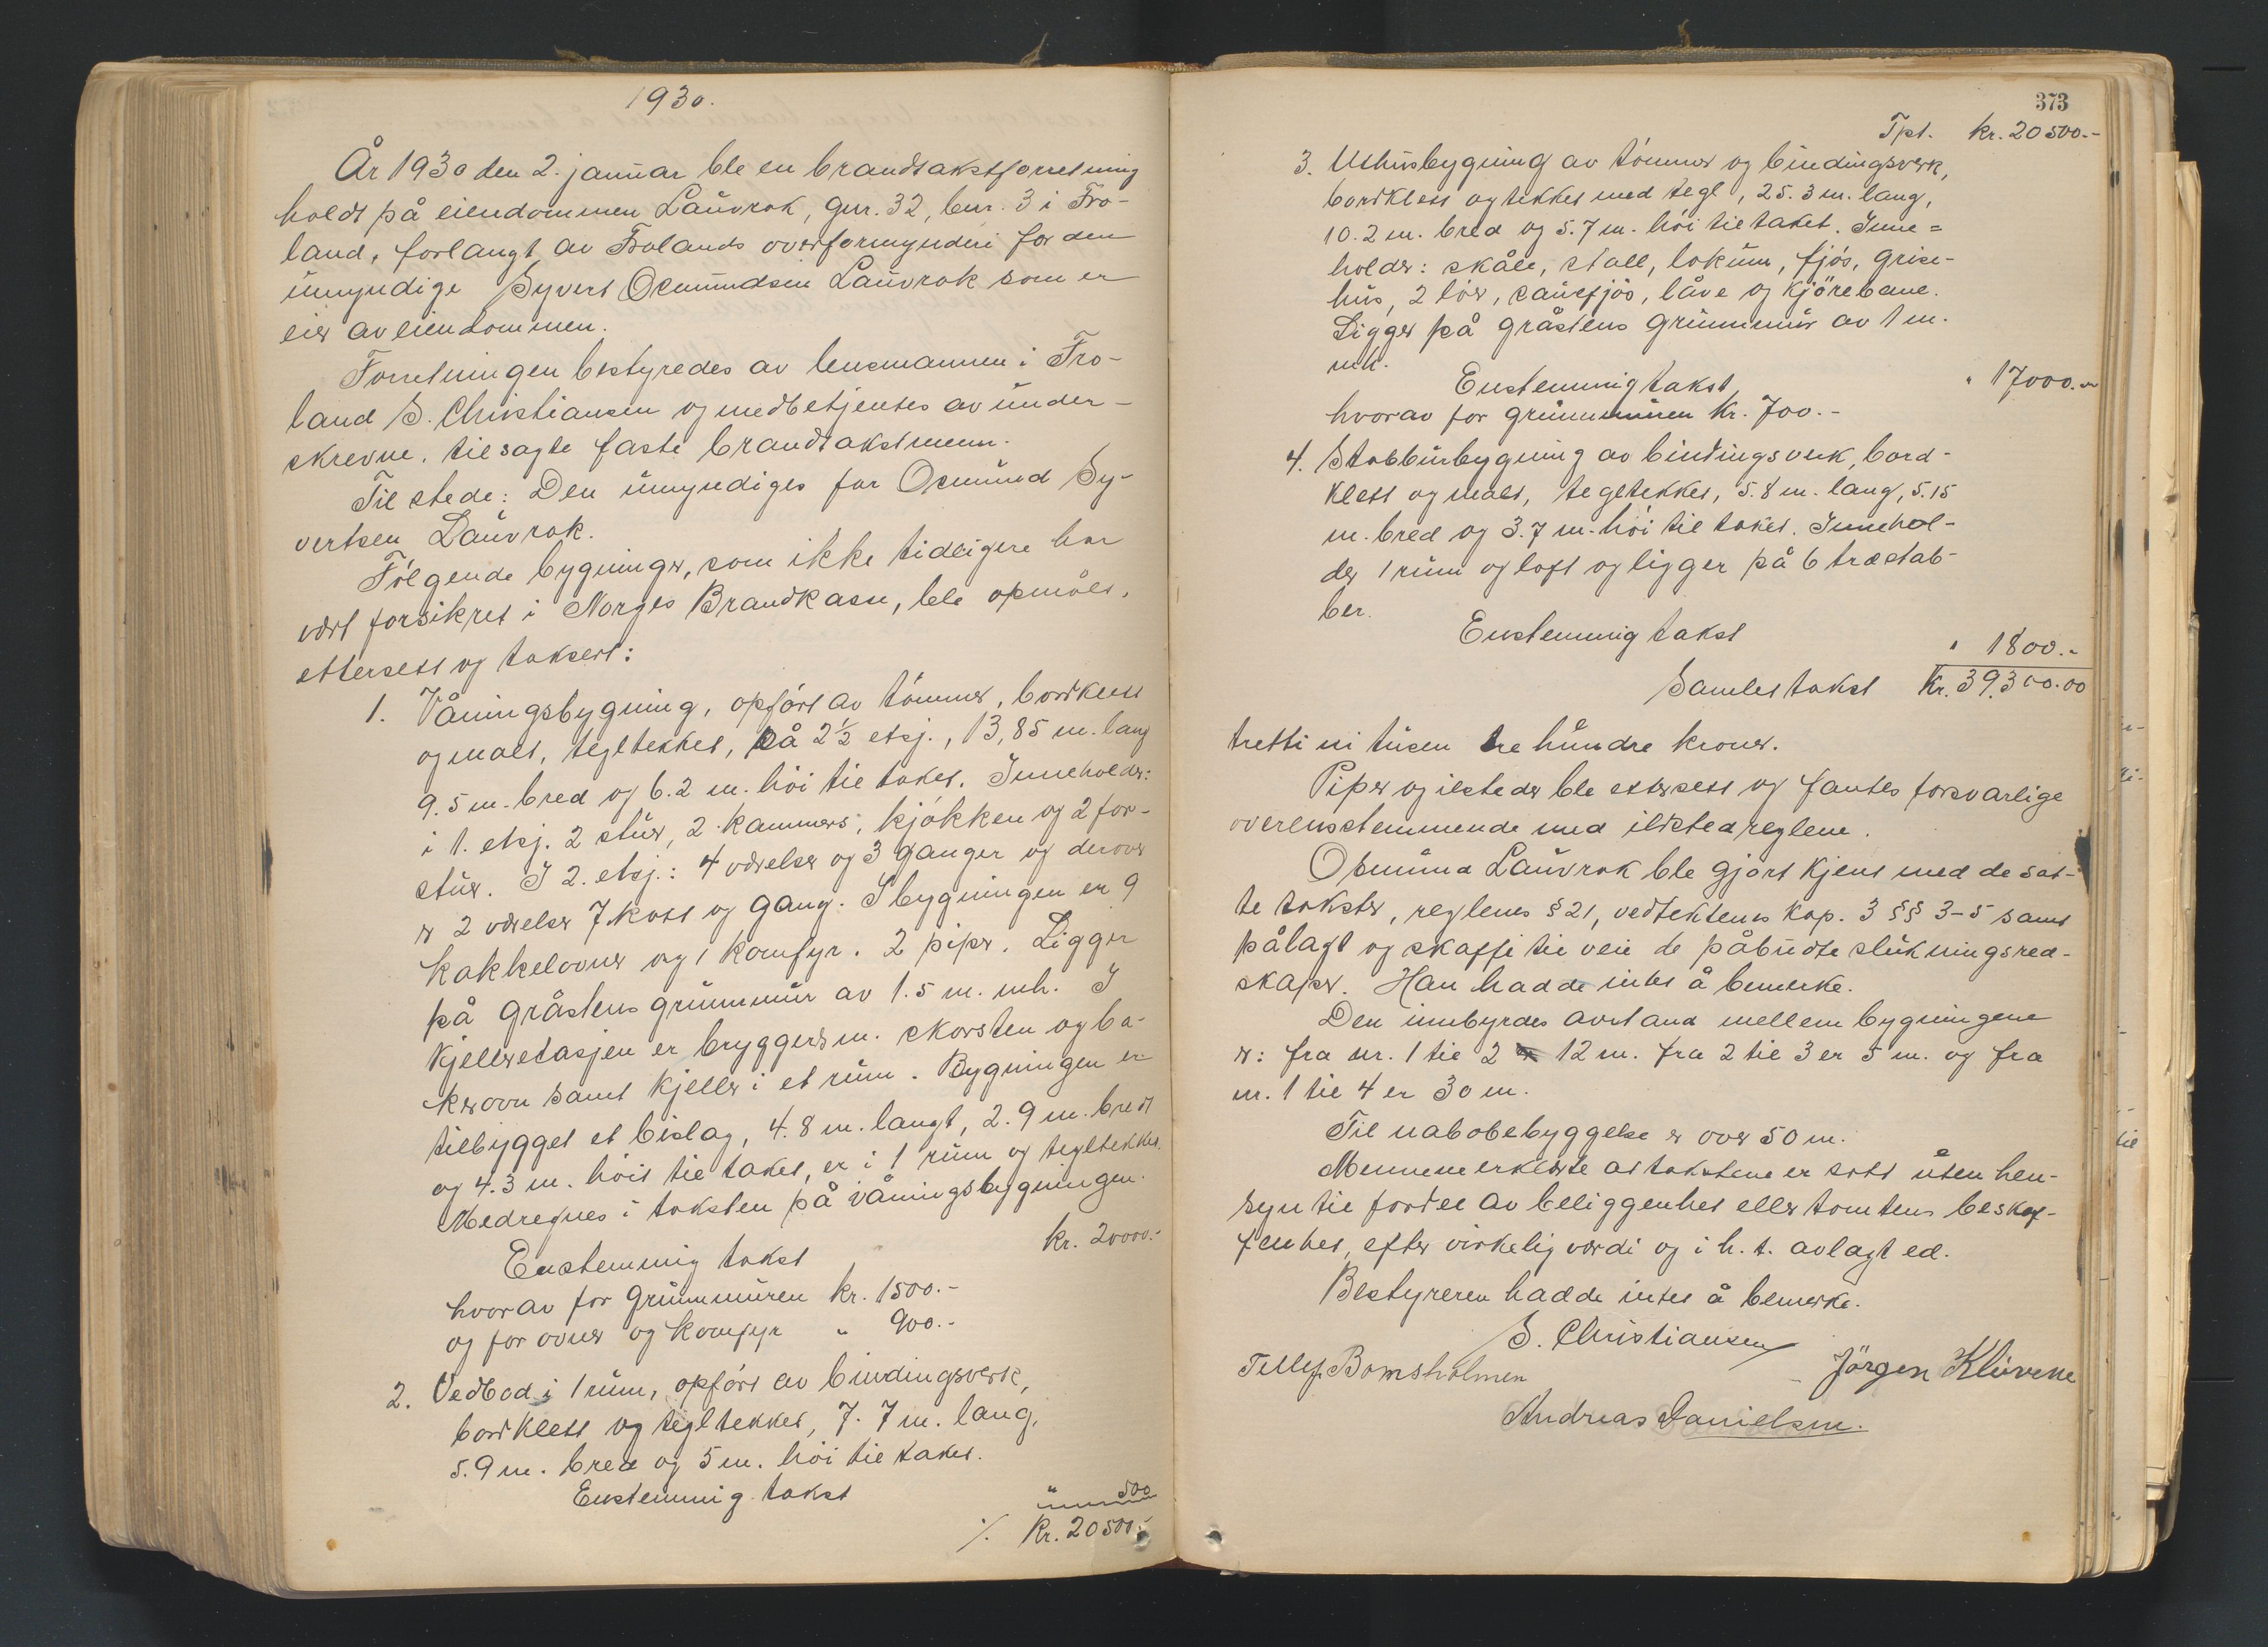 1930.
År 1930 den 2. januar ble en brandtakstforretning
holdt på eiendommen Lauvrak, gnr. 32, bnr. 3 i Fro-
land, forlangt av Frolands overformynderi for den
umyndige Syvert Osmundsen Lauvrak som er
eier av eiendommen.
Forretningen bestyredes av lensmannen i Fro-
land S. Christiansen og medbetjentes av under-
skrevne, tilsagte faste brandtakstmenn.
Til stede: Den umyndiges far Osmund Sy-
vertsen Lauvrak.
Følgende bygninger, som ikke tidligere har
vært forsikret i Norges Brandkasse, ble opmålt,
ettersett og taksert:
1. Våningsbygning, opført av tømmer, bordklett
og malt, tegltekket, på 2½ etsj., 13,85 m. lang
9.5 m. bred og 6.2 m. høi til taket. Inneholder:
i 1. etsj. 2 stuer, 2 kammers, kjøkken og 2 for-
stuer. I 2. etsj.: 4 værelser og 3 ganger og derover
er 2 værelser 7 kott og gang. I bygningen er 9
kakkelovner og 1 komfyr. 2 piper. Ligger
på gråstens grunnmur av 1.5 m. mh. I
kjelleretasjen er bryggers m. skorsten og ba-
kerovn samt kjeller i et rum. Bygningen er
tilbygget et bislag, 4.8 m. langt, 2.9 m. bredt
og 4.3 m. høit til taket, er i 1 rum og tegltekket.
Medregnes i taksten på våningsbygningen.
Enstemmig takst kr. 20000.-
hvorav for grunnmuren kr. 1500.-
og for ovner og komfyr " 900.-
2. Vedbod i 1 rum, opført av bindingsverk,
bordklett og tegltekket, 7.7 m. lang,
5.9 m. bred og 5 m. høi til taket.
Enstemmig takst " 500
./. Kr. 20500.-
373
Tpt. kr. 20500.-
3. Uthusbygning av tømmer og bindingsverk,
bordklett og tekket med tegl, 25.3 m. lang,
10.2 m. bred og 5.7 m. høi til taket. Inne=
holder: skåle, stall, lokum, fjøs, grise-
hus, 2 løer, sauefjøs, låve og kjørebane.
Ligger på gråstens grunnmur av 1 m.
mh.
Enstemmig takst " 17000.-
hvorav for grunnmuren kr. 700.-
4. Stabbursbygning av bindingsverk, bord-
klett og malt, tegltekket, 5.8 m. lang, 5.15
m. bred og 3.7 m. høi til taket. Innehol-
der 1 rum og loft og ligger på 6 træstab-
ber.
Enstemmig takst " 1800.-
Samlet takst Kr. 39.300.00
tretti ni tusen tre hundre kroner.
Piper og ilsteder ble ettersett og fantes forsvarlige
overensstemmende med ildstedreglene.
Osmund Lauvrak ble gjort kjent med de sat-
te takster, reglenes § 21, vedtektenes kap. 3 §§ 3-5 samt
pålagt og skaffe til veie de påbudte slukningsred-
skaper. Han hadde intet å bemerke.
Den innbyrdes avstand mellem bygningene
er: fra nr. 1 til 2 12 m. fra 2 til 3 er 5 m. og fra
nr. 1 til 4 er 30 m.
Til nabobebyggelse er over 50 m.
Mennene erklærte at takstene er satt uten hen-
syn til fordel av beliggenhet eller tomtens beskaf-
fenhet, efter virkelig værdi og i h. t. avlagt ed.
Bestyreren hadde intet å bemerke.
S. Christiansen
Tellef Bomsholmen Jörgen Kluvene
Andreas Danielsen.